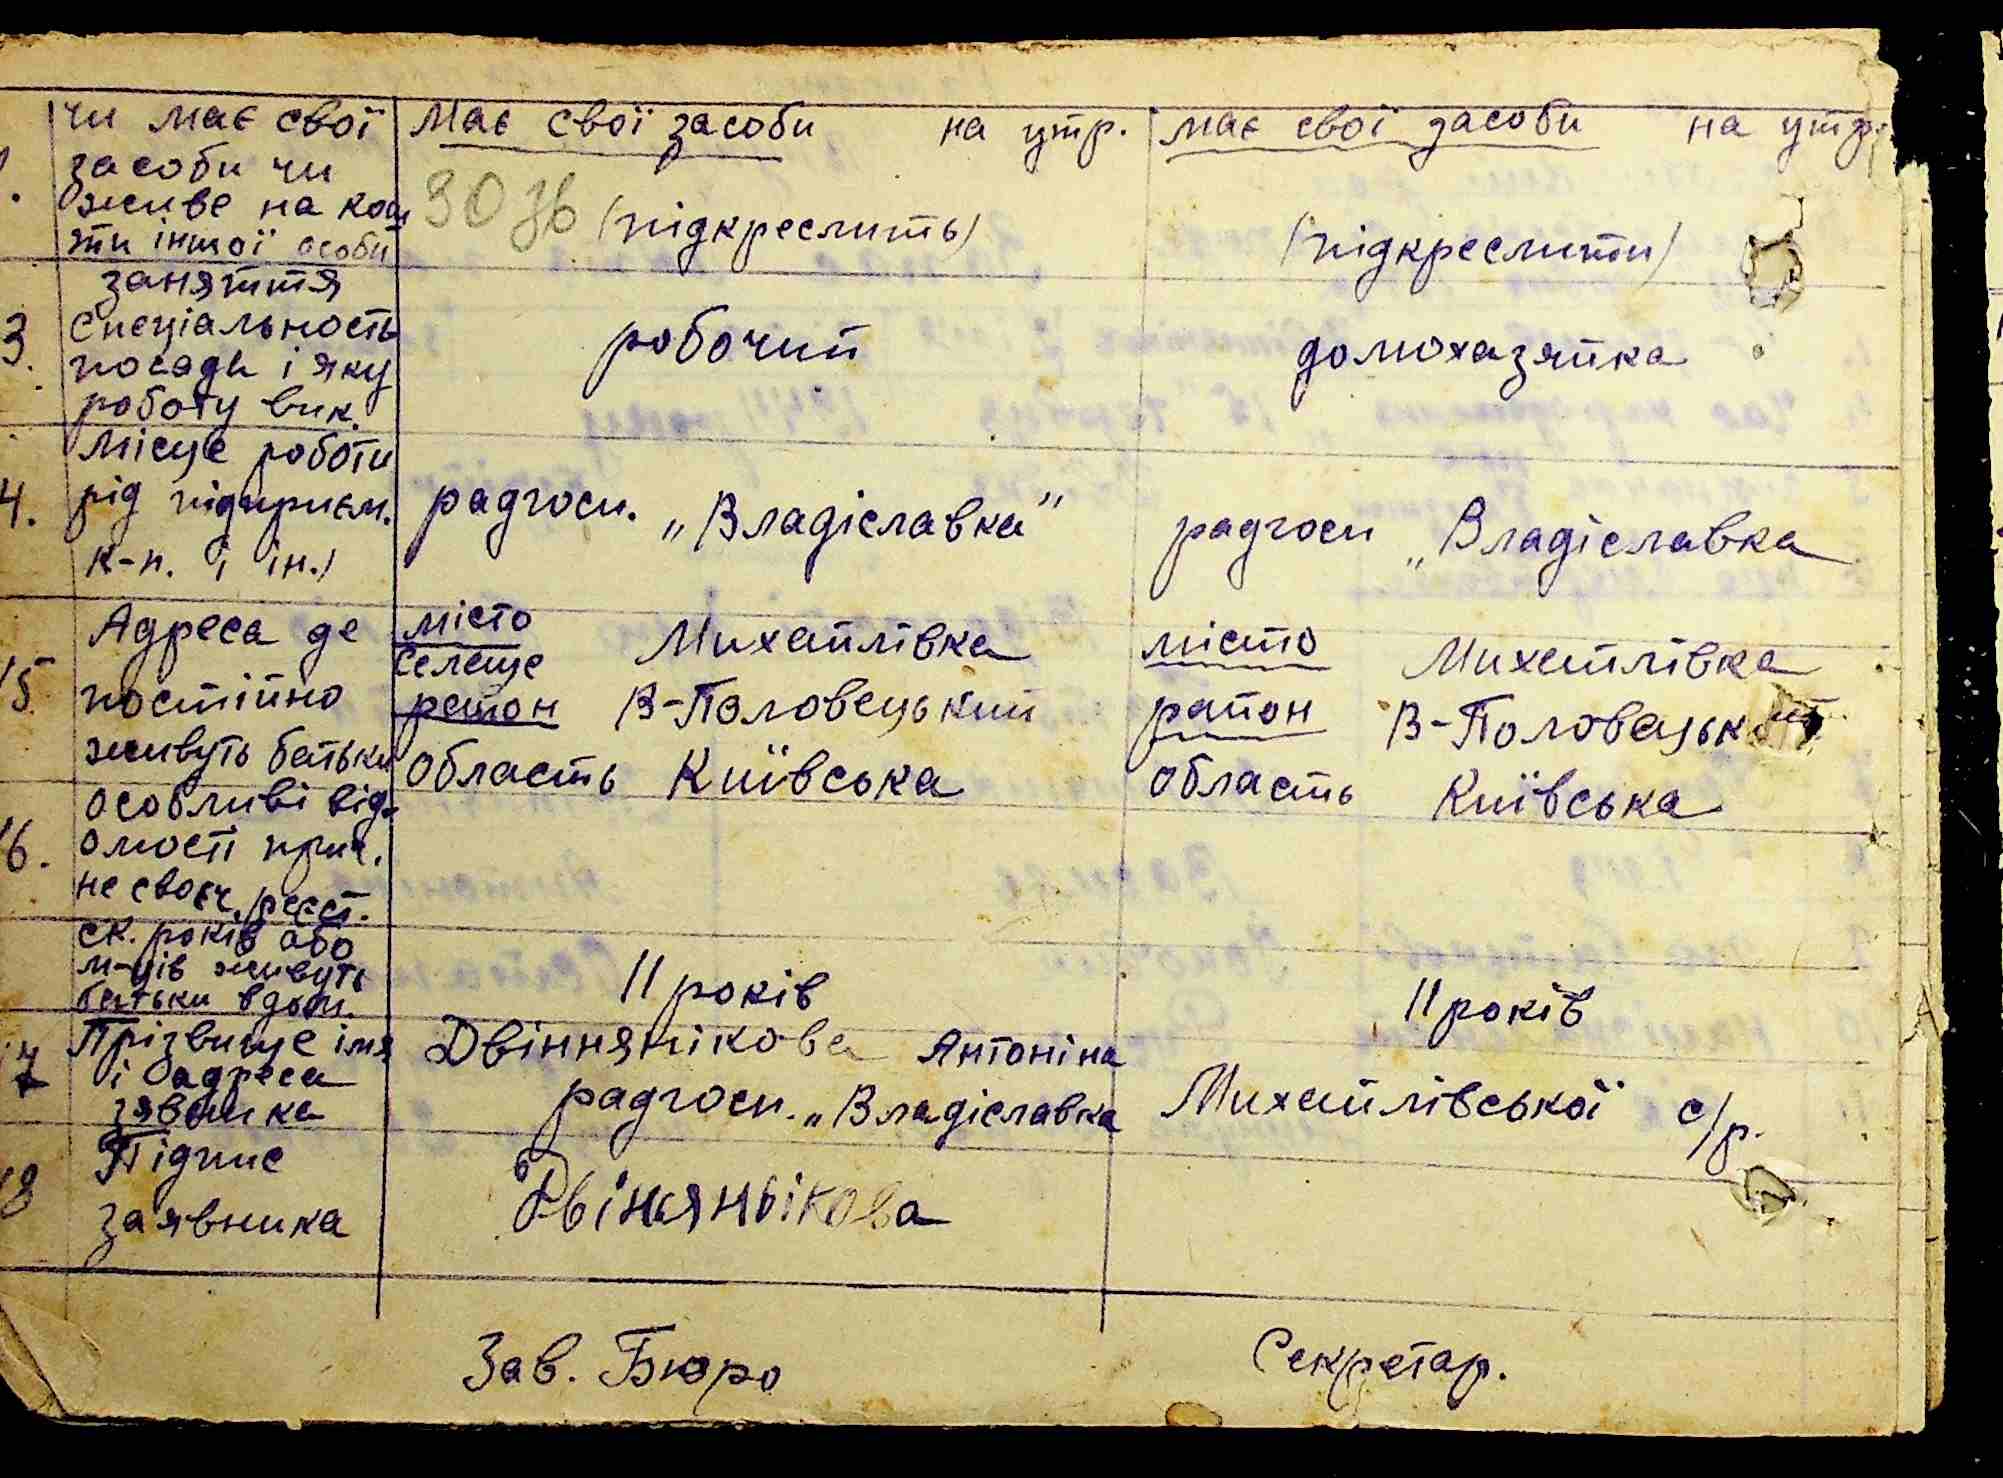 чи має свої
засоби чи
живе на кош
ти іншої особи
Має свої засоби на утр.
30 зв (підкреслить)
має свої засоби на утр.
(підкреслити)
3. заняття
спеціальность
посада і яку
роботу вик.
робочий
домохазяйка
4. місце роботи
рід підприєм.
к-п. і ін.)
радгосп. „Владіславка"
радгосп „Владіславка
15 Адреса де
постійно
живуть батьки
місто Михайлівка
селеще
район В-Половецький
область Київська
місто Михайлівка
район В-Половецький
область Київська
16. особливі від-
омості прич.
не своєч. реєст.
ск. років або
м-ців живуть
батьки вдом.
11 років
11 років
17 Прізвище імя
і адреса
заявника
Двінняпікова Антоніна
радгосп. „Владіславка
Михайлівської с/р.
18 Підпис
заявника
Двіняньікова
Зав. Бюро
Секретар.